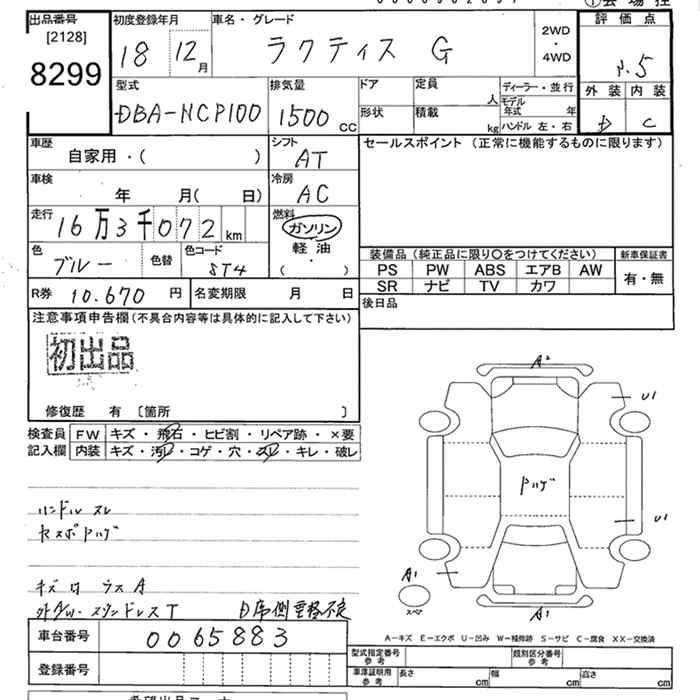 出品番号
[2128]
8299
初度登録年月
18 12月
車名・グレード
ラクティス G
2WD
・
4WD
評価点
3.5
外装 内装
D C
型式
DBA-NCP100
排気量
1500 cc
ドア
形状
定員
人
積載
kg
ディーラー・並行
モデル年式 年
ハンドル 左・右
車歴
自家用・( )
シフト
AT
セールスポイント (正常に機能するものに限ります)
車検
年 月( 日)
冷房
AC
走行
16万3千072 km
燃料
ガソリン
軽・油
・
( )
色
ブルー
色替
色コード
8T4
装備品(純正品に限り〇をつけてください)
新車保証書
PS PW ABS エアB AW
有・無
SR ナビ TV カワ
R券 10.670 円
名変期限 月 日
後日品
注意事項申告欄(不具合内容等は具体的に記入して下さい)
初出品
修復歴 有 [箇所 ]
検査員
記入欄
FW キズ・飛石・ヒビ割・リペア跡・×要
内装 キズ・汚レ・コゲ・穴・スレ・キレ・破レ
ハンドル スレ
A2
U1
U1
A1
A1
スペア
A-キズ E-エクボ U-凹み W-補修跡 S-サビ C-腐食 XX-交換済
車台番号
0065883
登録番号
型式指定番号
参考
類別区分番号
参考
車庫証明用
参考
長さ cm
幅 cm
高さ cm